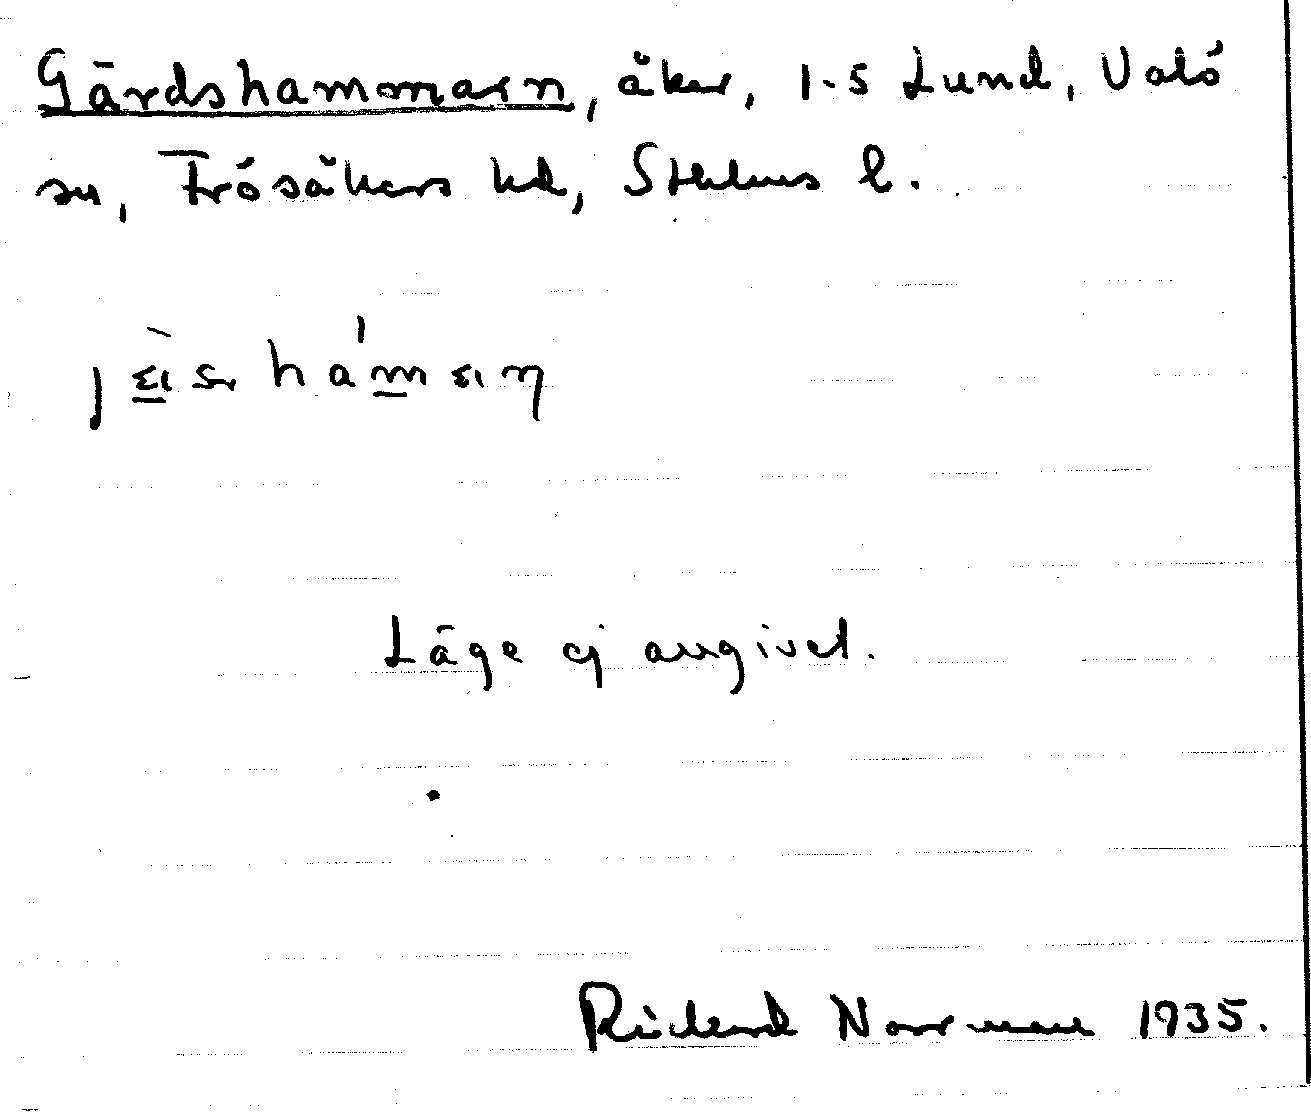 Gärdshammarn, åker, 1-5 Lund, Valö
sn, Frösåkers hd, Sthlms l.
Läge ej angivet.
Rickard Norrman 1935.